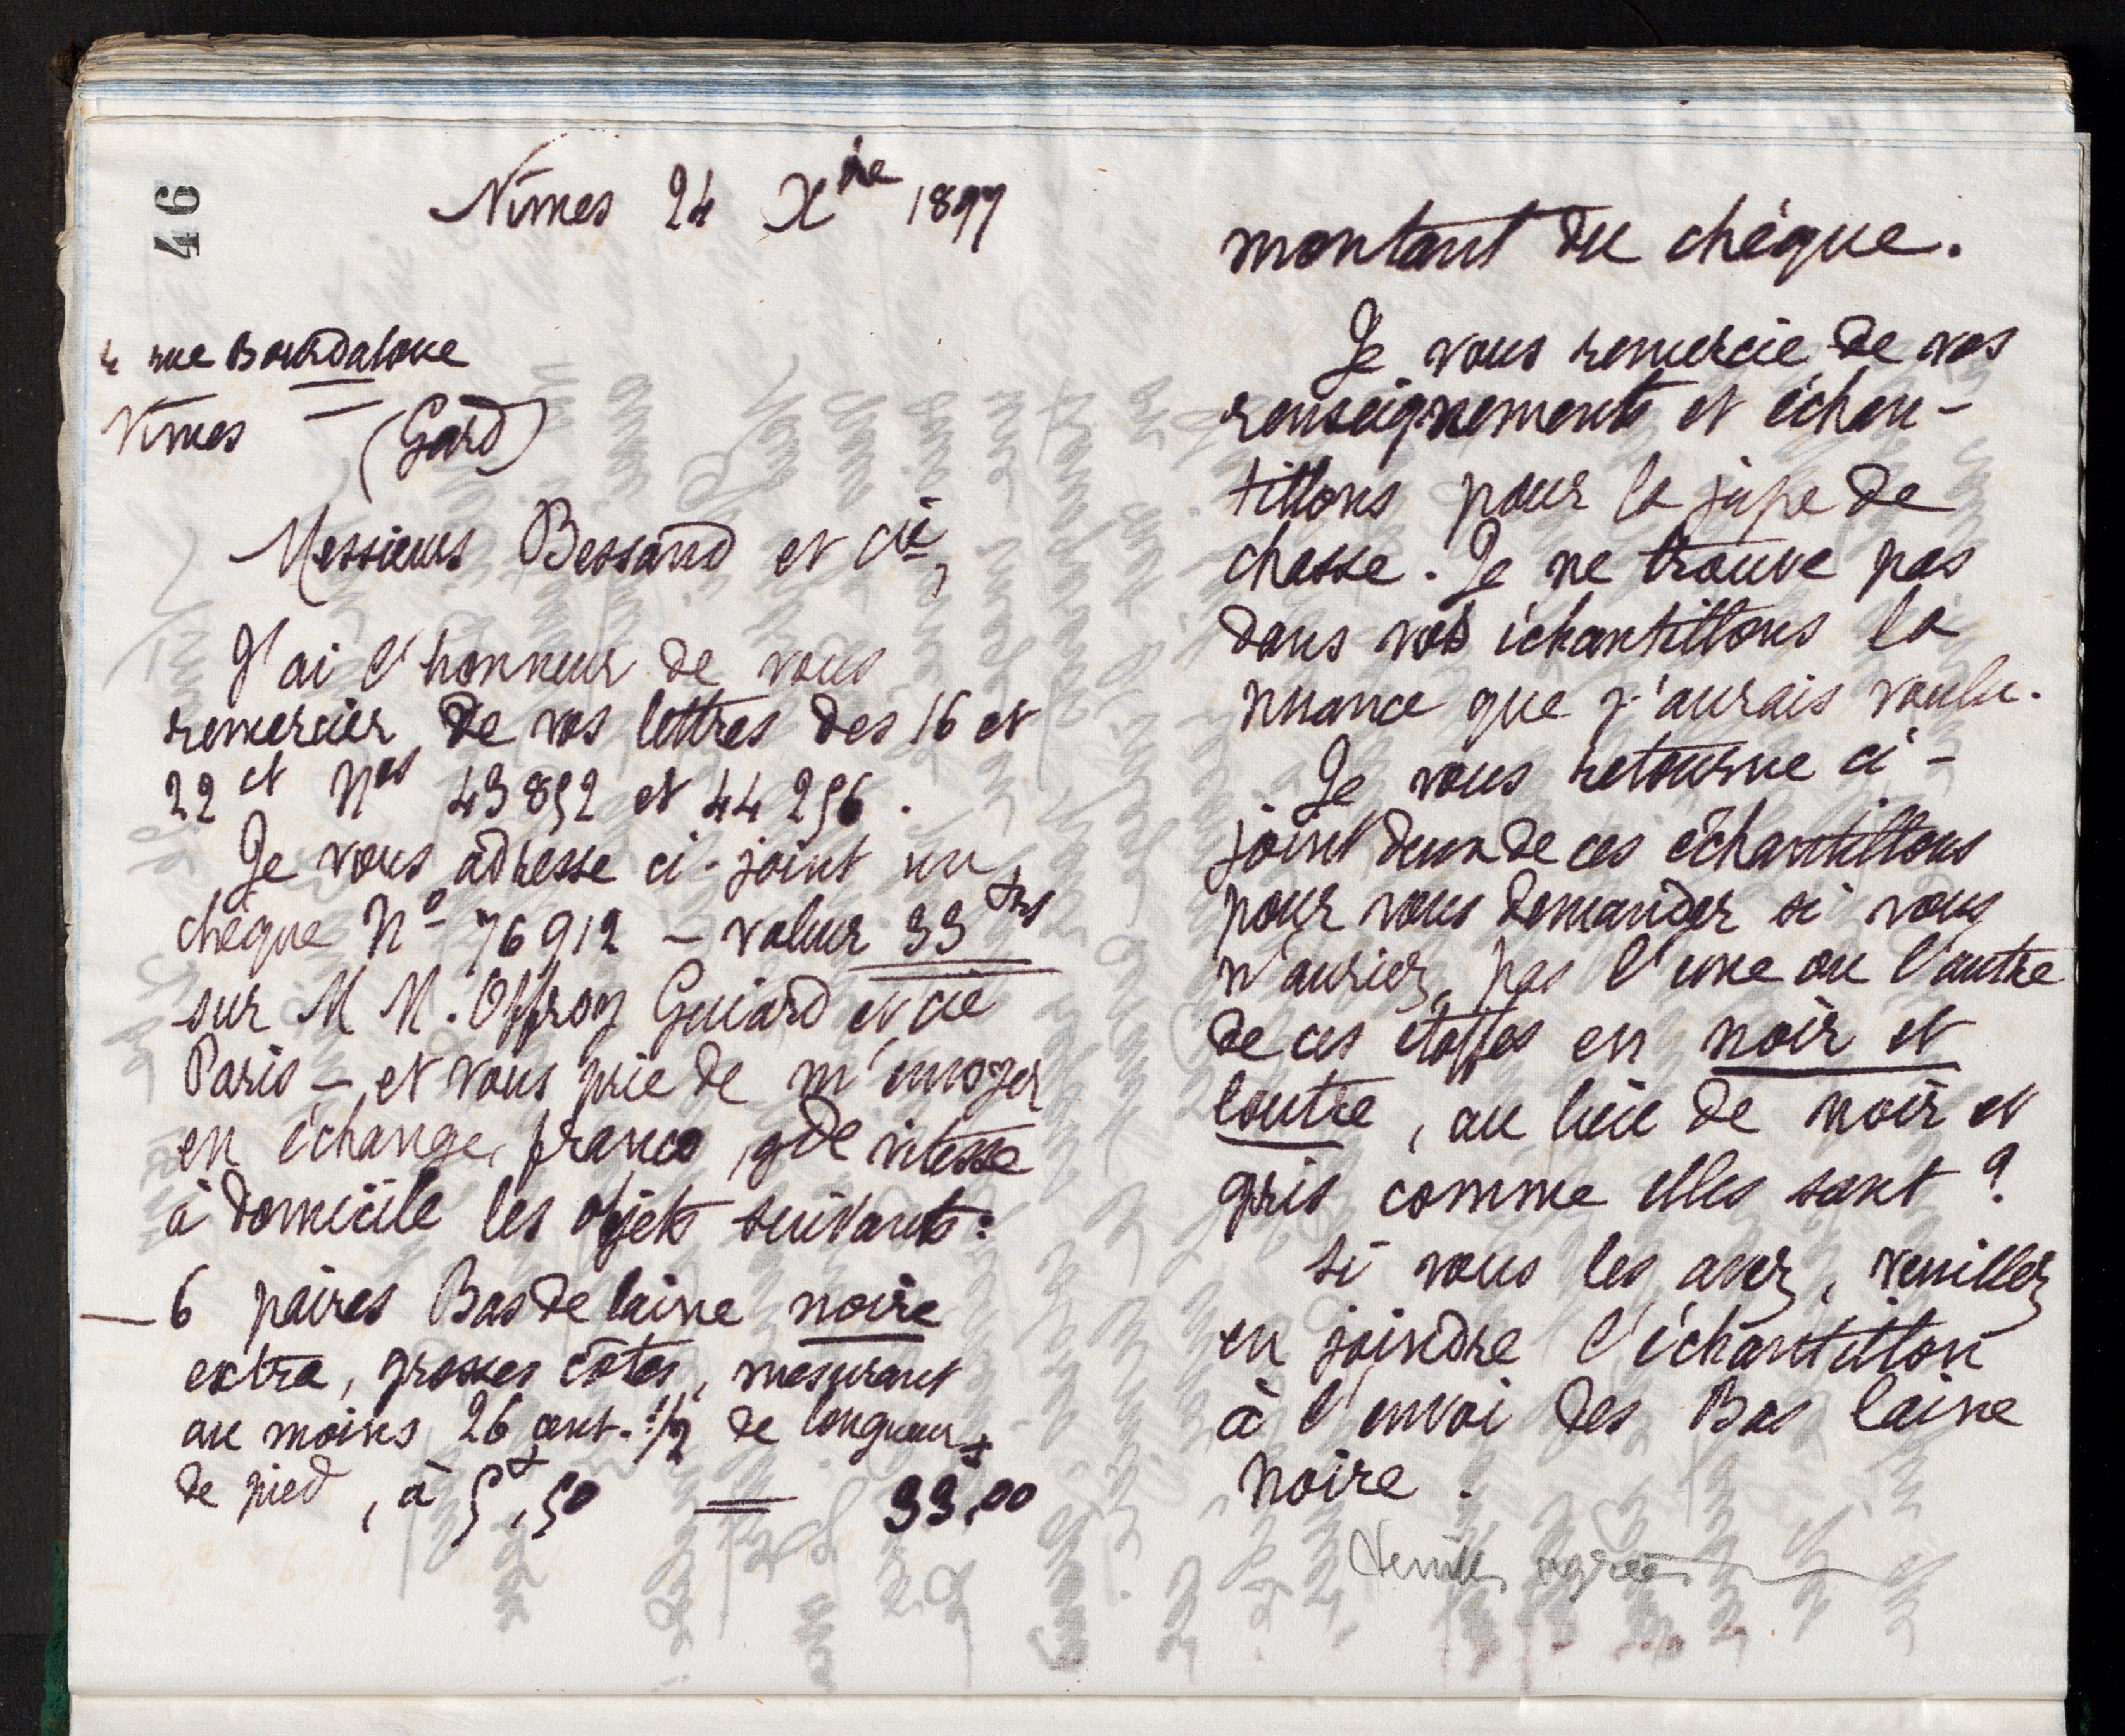 46
Nîmes 24 Xbre 1897
4 rue Bourdaloue
Nîmes (Gard)
Messieurs Bessand et Cie,
J'ai l'honneur de vous
remercier de vos lettres des 16 et
22 ct Nos 43852 et 44256.
Je vous adresse ci-joint un
chèque No 76912 – valeur 33 frs
sur M M. Offroy Guiard et Cie
Paris –, et vous prie de m'envoyer
en échange, franco, gde vitesse
à domicile les objets suivants :
— 6 paires Bas de laine noire
extra, grosses côtes, mesurant
au moins 26 cent. 1/2 de longueur
de pied, à 5f,50 = 33f,00
montant du chèque.
Je vous remercie de vos
renseignements et échan-
tillons pour la jupe de
chasse. Je ne trouve pas
dans vos échantillons la
nuance que j'aurais voulu.
Je vous retourne ci-
joint deux de ces échantillons
pour vous demander si vous
n'auriez pas l'une ou l'autre
de ces étoffes en noir et
loutre, au lieu de noir et
gris comme elles sont ?
Si vous les avez, veuillez
en joindre l'échantillon
à l'envoi des Bas laine
noire.
Veuillez agréer